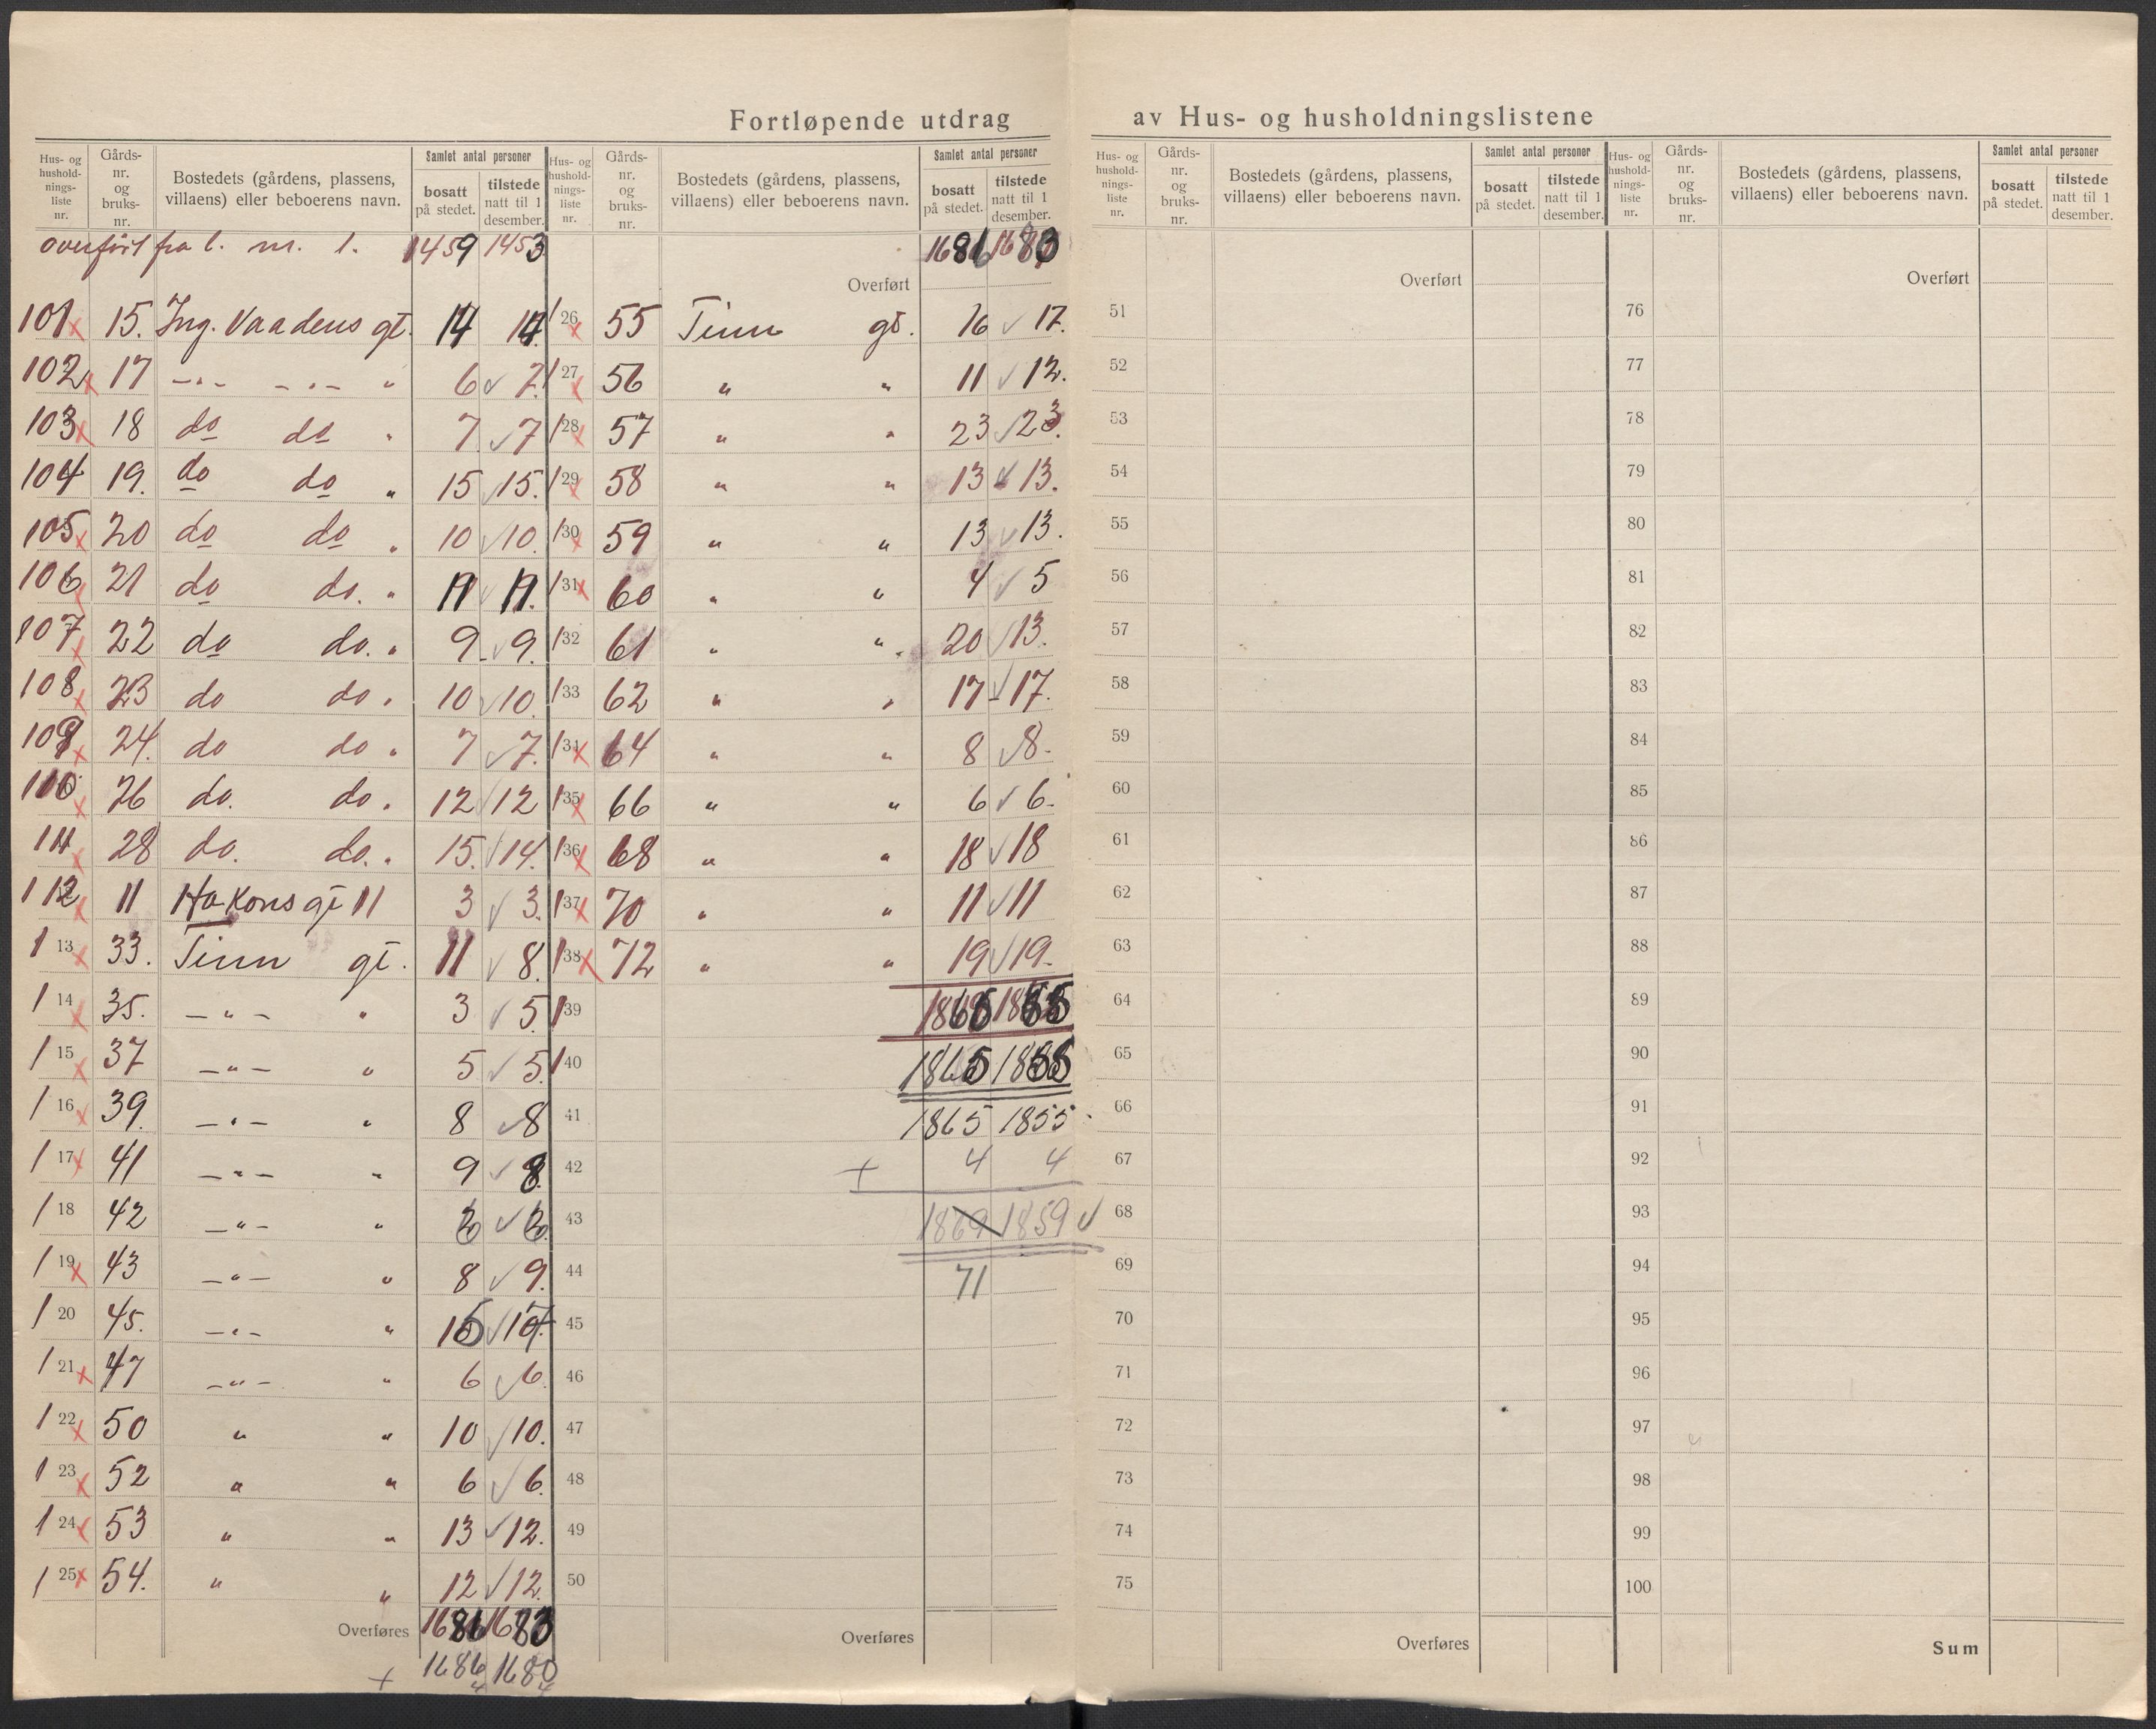 Fortløpende utdrag av Hus- og husholdningslistene
Hus- og
hushold-
nings-
liste
nr.
Gårds-
nr.
og
bruks-
nr.
Bostedets (gårdens, plassens,
villaens) eller beboerens navn.
Samlet antal personer
bosatt
på stedet.
tilstede
natt til 1
desember.
overført fra l. nr. 1. 1459 1453
101 15. Ing. Vaadens gt. 14 14.
102 17 -"- -"- " 6 7.
103 18 do do " 7 7
104 19. do do " 15 15.
105 20 do do " 10 10.
106 21 do do. " 11 11.
107 22 do do. " 9 9.
108 23 do do " 10 10.
109 24. do do " 7 7.
110 26 do. do. 12 12
111 28 do. do. " 15. 14.
112 11 Hakons gt 11 3 3.
113 33. Tinn gt. 11 8.
114 35. -"- " 3 5.
115 37 -"- " 5 5.
116 39. -"- " 8 8
117 41 -"- " 9 8
118 42 -"- "
119 43 -"- " 8 9.
120 45. -"- " 15
121 47 -"- " 6 6.
122 50 " " 10 10.
123 52 " " 6 6.
124 53 " " 13 12.
125 54. " " 12 12.
Overføres 1686 1683
+ 1686 1680
4 4
Hus- og
hushold-
nings-
liste
nr.
Gårds-
nr.
og
bruks-
nr.
Bostedets (gårdens, plassens,
villaens) eller beboerens navn.
Samlet antal personer
bosatt
på stedet.
tilstede
natt til 1
desember.
1686 1680
Overført
126 55 Tinn gt. 16 17.
127 56 " " 11 12.
128 57 " " 23 23.
129 58 " " 13 13.
130 59 " " 13 13.
131 60 " " 4 5
132 61 " " 20 13.
133 62 " " 17 17.
134 64 " " 8 8.
135 66 " " 6 6.
136 68 " " 18 18
137 70 " " 11 11
138 72 " " 19 19.
139 1865 1855
140 1865 1855
41 1865 1855
42 + 4 4
43 1869 1859
44 71
45
46
47
48
49
50
Overføres
Hus- og
hushold-
nings-
liste
nr.
Gårds-
nr.
og
bruks-
nr.
Bostedets (gårdens, plassens,
villaens) eller beboerens navn.
Samlet antal personer
bosatt
på stedet.
tilstede
natt til 1
desember.
Overført
51
52
53
54
55
56
57
58
59
60
61
62
63
64
65
66
67
68
69
70
71
72
73
74
75
Overføres
Hus- og
hushold-
nings-
liste
nr.
Gårds-
nr.
og
bruks-
nr.
Bostedets (gårdens, plassens,
villaens) eller beboerens navn.
Samlet antal personer
bosatt
på stedet.
tilstede
natt til 1
desember.
Overført
76
77
78
79
80
81
82
83
84
85
86
87
88
89
90
91
92
93
94
95
96
97
98
99
100
Sum